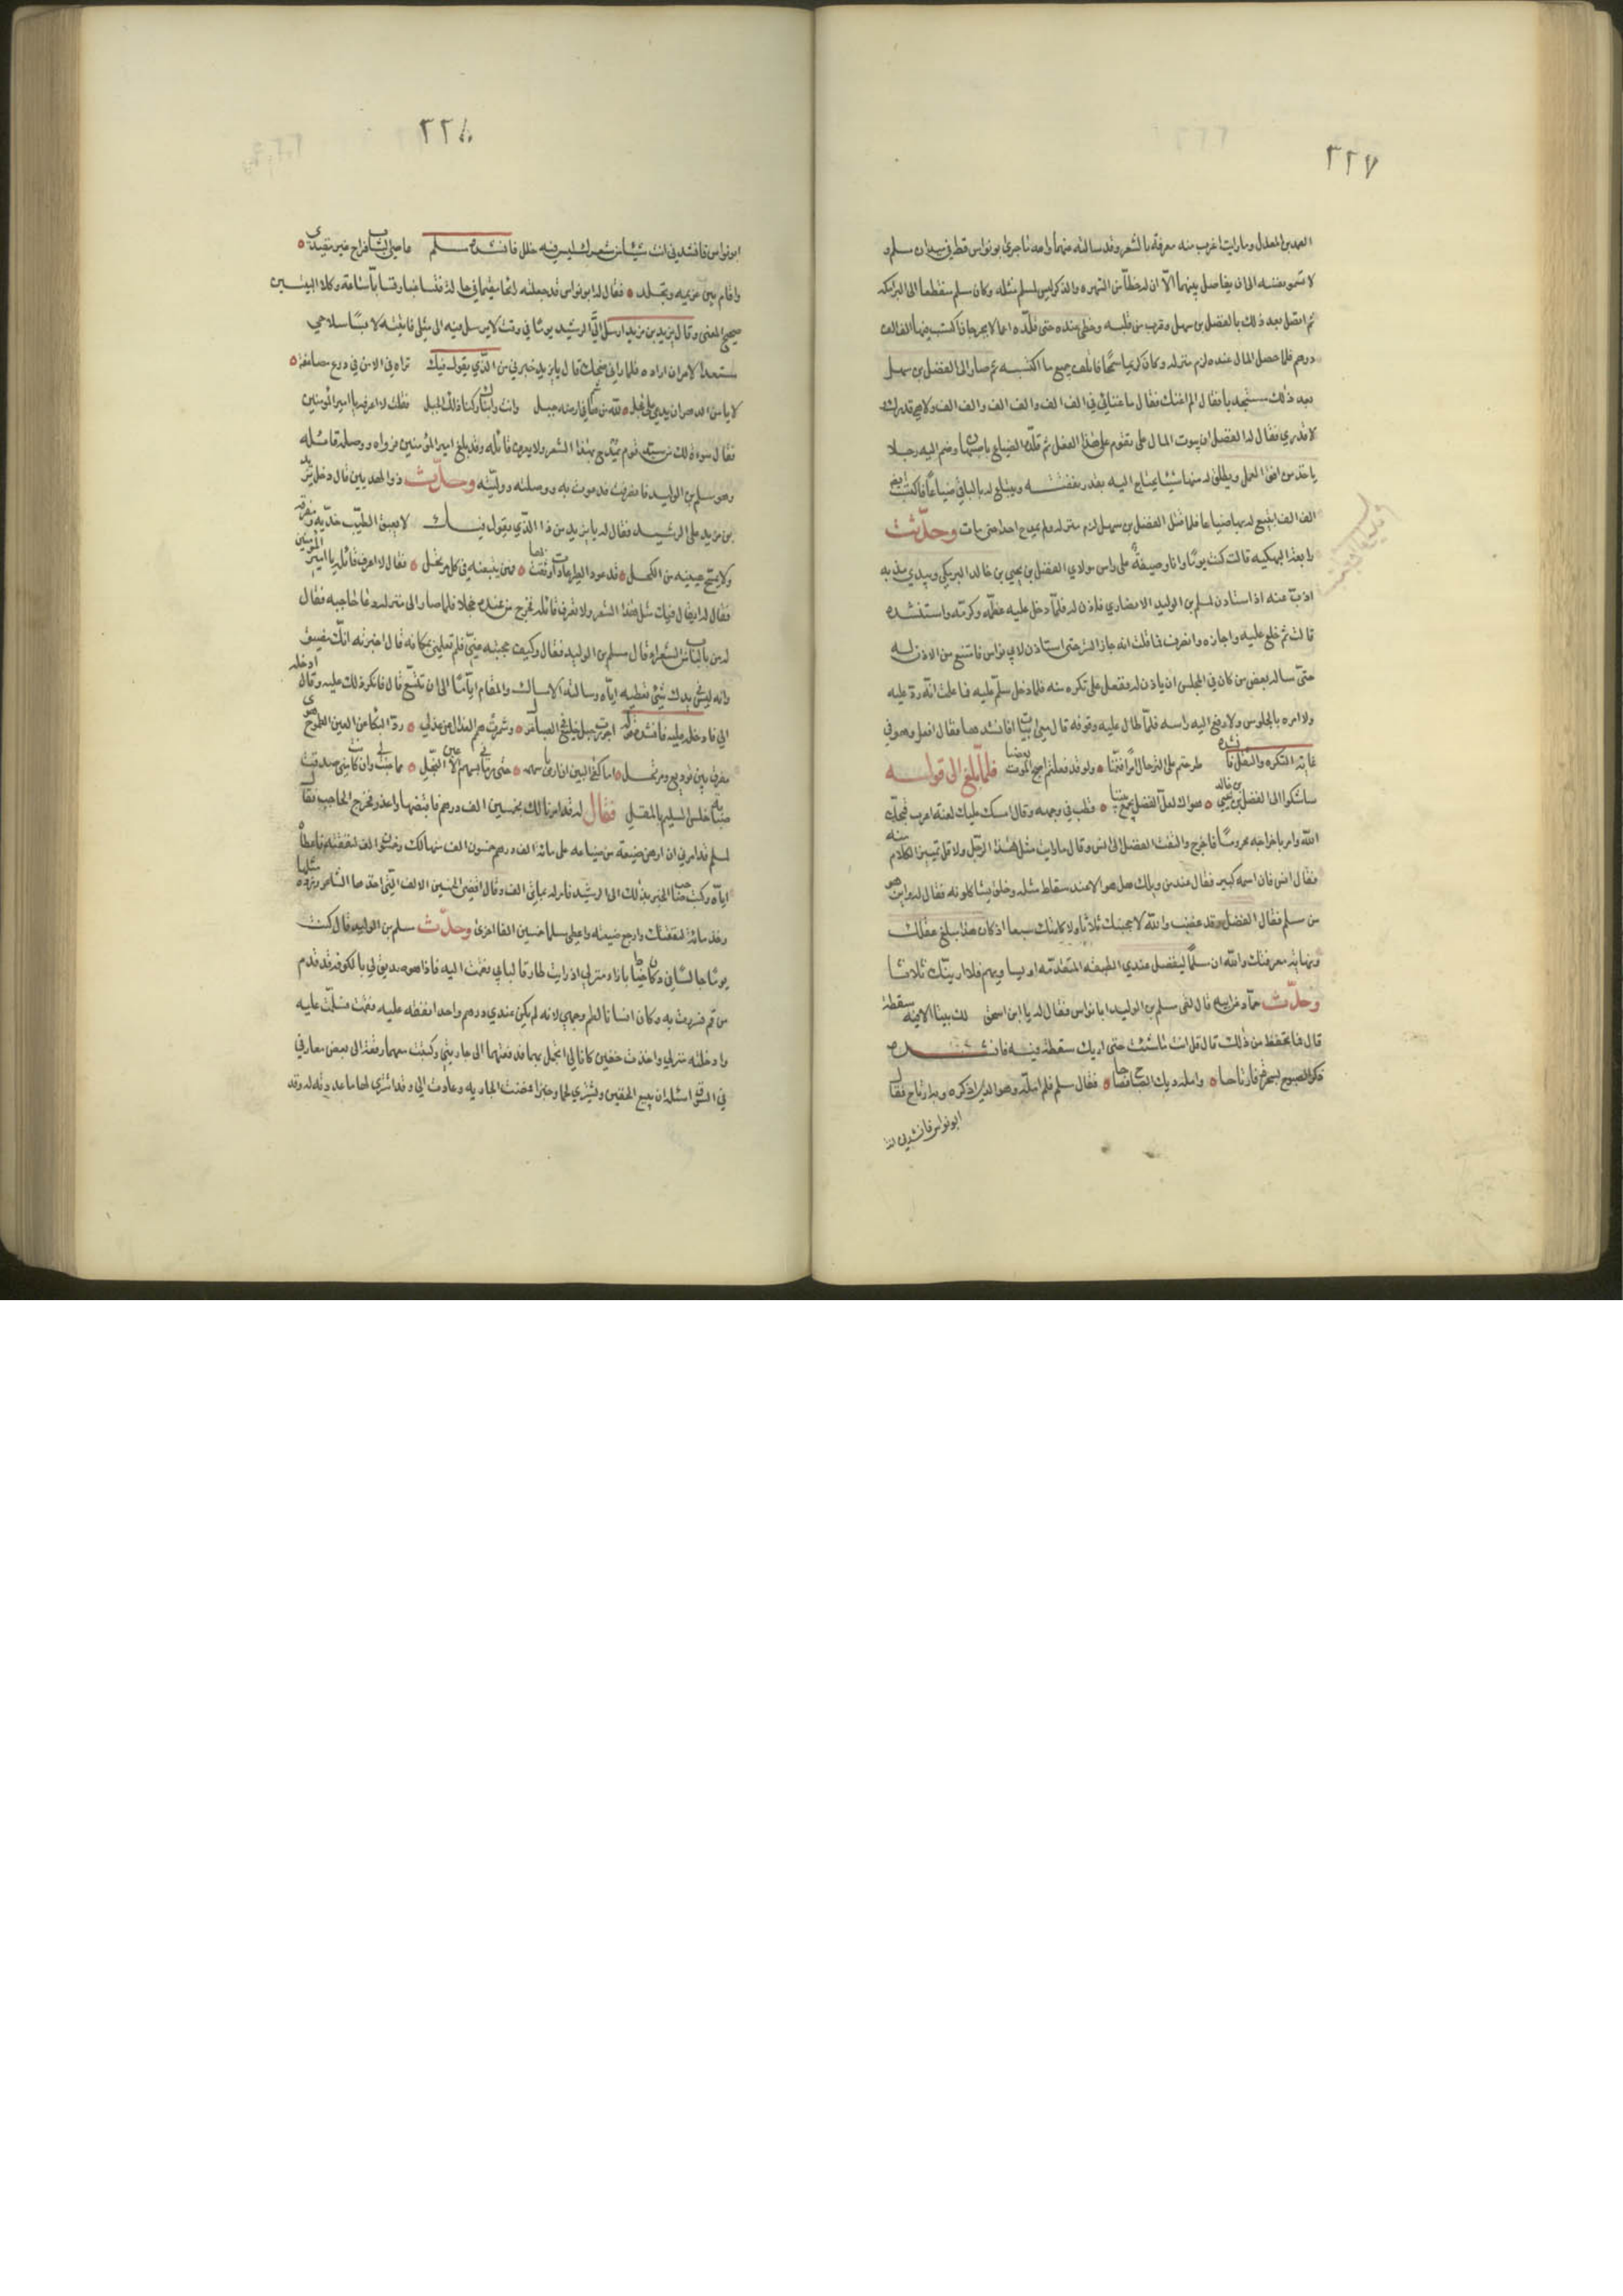 ٢٢٧
العمد بن المعدل وما رايت اغرب منه معرفة بالشعر وقد سالته عنهما وا
لا تسمو نفسه الى ان يفاضل بينهما الا ان له حظا من الشهره والذكر ليس لمسلم مثله وكان مسلم منقطعا الى البرامكه
ثم اتصل بعد ذلك بالفضل بن سهل وقرب من قلبه وحظي عنده حتى قلده اعمالا بجرجان فاكتسب فيها الف الف
درهم فلما حصل المال عنده لزم منزله وكان كريما سمحا فاتلف جميع ما اكتسبه ثم صار الى الفضل بن سهل
بعد ذلك مستجديا فقال الم اغنك فقال ما غنائي في الف الف والف الف والف الف ولا هي قدرك
لا قدري فقال له الفضل ان بيوت المال على هذا الفعل ثم قلده الضياع باصبهان وضم اليه رجلا
ياخذ من افق العمل ويطلق له منها شيئا يحتاج اليه بقدر نفقته ويبتاع له بالباقي ضياعا فاكتسب ايضا
الف الف ابتيع له بها ضياعا فلما قتل الفضل بن سهل لزم منزله ولم يمدح احدا حتى مات وحدثت
رابعة البرمكيه قالت كنت يوما وانا وصيفة على راس مولاي الفضل بن يحيى بن خالد البرمكي وبيدي مذبه
اذب عنه اذ استاذن لمسلم بن الوليد الانصاري فاذن له فلما دخل عليه عظمه وكرمه واستنشده
قالت ثم خلع عليه واجازه وانصرف فما قلت انه جاز الستر حتى استاذن لابي نواس فامتنع من الاذن له
حتى ساله بعض من كان في المجلس ان ياذن له ففعل على تكره منه فلما دخل سلم عليه فما علمت انه رد عليه
ولا امره بالجلوس ولا رفع اليه راسه فلما طال عليه وقوفه قال معي ابيات افانشدها فقال افعل وهو في
غاية التكره والثقل فانشده طرحتم على الترحال امرا فغمنا ولو قد فعلتم صبح الموت بعضنا فلما بلغ الى قوله
ساشكو الى الفضل بن يحيى بن خالد هواك لعل الفضل يجمع بيننا قطب في وجهه وقال امسك عليك لعنة
الله وامر باخراجه محروما فاخرج والتفت الفضل الى انس وقال ما رايت مثل هذا الرجل ولا اقل تمييزا لكلام منه
فقال انس فان اسمه كبير فقال عند من ويلك هل هو الا عند سقاط مثله
من مسلم فقال الفضل وقد غضب والله لا بلغ عقلك
ونهاية معرفتك والله ان مسلما ليفضل عندي الطبقة المتقدمه
وحدث حماد بن اسحق قال لقي مسلم بن الوليد ابا نواس فقال له يا ابن اسحق لك بيتا الا فيه سقطة
قال فما تحفظ من ذلك قال قل انت ما شئت حتى اريك سقطه فيه فانشده
ذكر الصبوح بسحرة فارتاحا وامله ديك الصباح صياحا فقال مسلم فلم امله وهو الذي اذكره وبه ارتاح فقال
ابو نواس فانشدني انت
٢٢٨
ابو نواس فانشدني انت شيئا من شعرك ليس فيه خلل فانشده مسلم عاصى الشباب فراح غير مفند
واقام بين عزيمه وتجلد فقال له ابو نواس قد جعلته رائحا مقيما في حال وكلا البيتين
صحيح المعنى وقال يزيد بن مزيد ارسل الي الرشيد يوما في وقت لا يرسل فيه الى مثلي فاتيته لابسا سلاحي
مستعدا لامر ان اراده فلما راني ضحك قال يا يزيد خبرني من الذي يقول فيك تراه في الامن في درع مضاعفة
لا يامن الدهر ان يدعى على عجل لله من هاشم في ارضه جبل وانت وابناك ركنا ذلك الجبل فقلت لا اعرفه يا امير المؤمنين
فقال سوءة لك من سيد قوم يمدح بهذا الشعر ولا يعرف قائله وقد بلغ امير المؤمنين فرواه ووصل قائله
وهو مسلم بن الوليد فانصرفت فدعوت به ووصلته ووليته وحدث ذو الهدمين قال دخل يزيد
بن مزيد على الرشيد فقال له يا يزيد من ذا الذي يقول فيك لا يعبق الطيب خديه ومفرقه
ولا يمسح عينيه من الكحل قد عود الطير عادات وثقن بها فهن يتبعنه في كل مرتحل فقال لا اعرف قائله يا امير المؤمنين
فقال له ايقال فيك مثل هذا الشعر ولا تعرف قائله فخرج من عنده خجلا فلما صار الى منزله دعا حاجبه فقال
له من بالباب من الشعراء قال مسلم بن الوليد فقال وكيف حجبته عني فلم تعلمني بمكانه قال اخبرته انك مضيق
وانه ليس في يدك شيئ تعطيه اياه وسالته الامساك والمقام اياما الى ان تتسع قال فانكر ذلك عليه وقال ادخله
الي فادخله عليه فانشده قوله اجررت حبل خليع في الصبا غزل وشمرت همم العذال في عذلي رد البكاء من العين الطموح هوى
مفرق بين توديع ومرتحل اما كفى البين ان ارمى باسهمه حتى رماني بسهم الاعين النجل مما جنت لي وان كانت منى صدقت
صبابة خلس التسليم بالمقل فقال له قد امرنا لك بخمسين الف درهم فاقبضها واعذر فخرج الحاجب فقال
لمسلم قد امرني ان ارهن ضيعة من ضياعه على مائة الف درهم خمسون الف منها لك وخمسون الف لنفقته فاعطاه
اياه وكتب صاحب الخبر بذلك الى الرشيد فامر له بمائتي الف وقال اقض الخمسين الالف التي اخذها الشاعر وزده مثلها
وخذ مائة لنفقتك وارجع ضيعته واعطى مسلما خمسين الفا اخرى وحدث مسلم بن الوليد قال كنت
يوما جالسا في دكان خياط بازاء منزلي اذ رايت طارقا لبابي فقمت اليه فاذا هو صديق لي بالكوفه قد قدم
من قم فسررت به وكان انسانا لطم وجهي لانه لم يكن عندي درهم واحد انفقه عليه فقمت فسلمت عليه
وادخلته منزلي واخذت خفين كانا لي اتجمل بهما فدفعتهما الى جاريتي وكتبت معهما رقعة الى بعض معارفي
في السوق اسئله ان يبيع الخفين ويشتري لحما وخبزا فمضت الجاريه وعادت الي وقد اشترى لها ما حددته له وقد